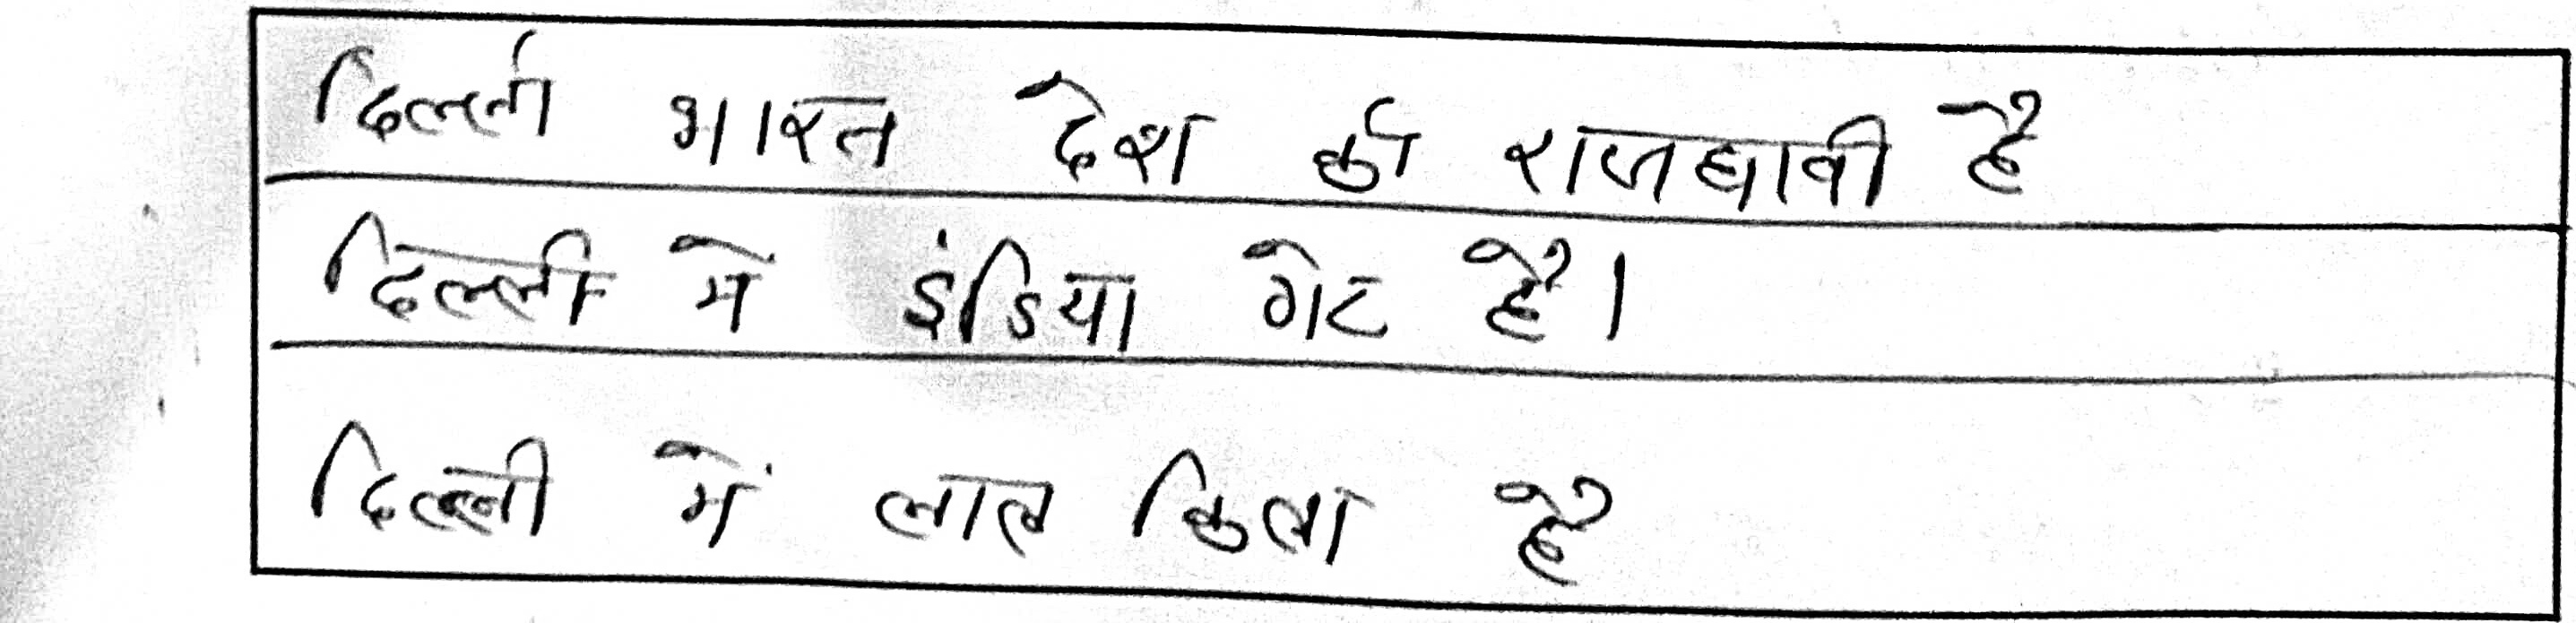 दिल्ली भारत देश की राजधानी है
दिल्ली में इंडिया गेट है।
दिल्ली में लाल किला है